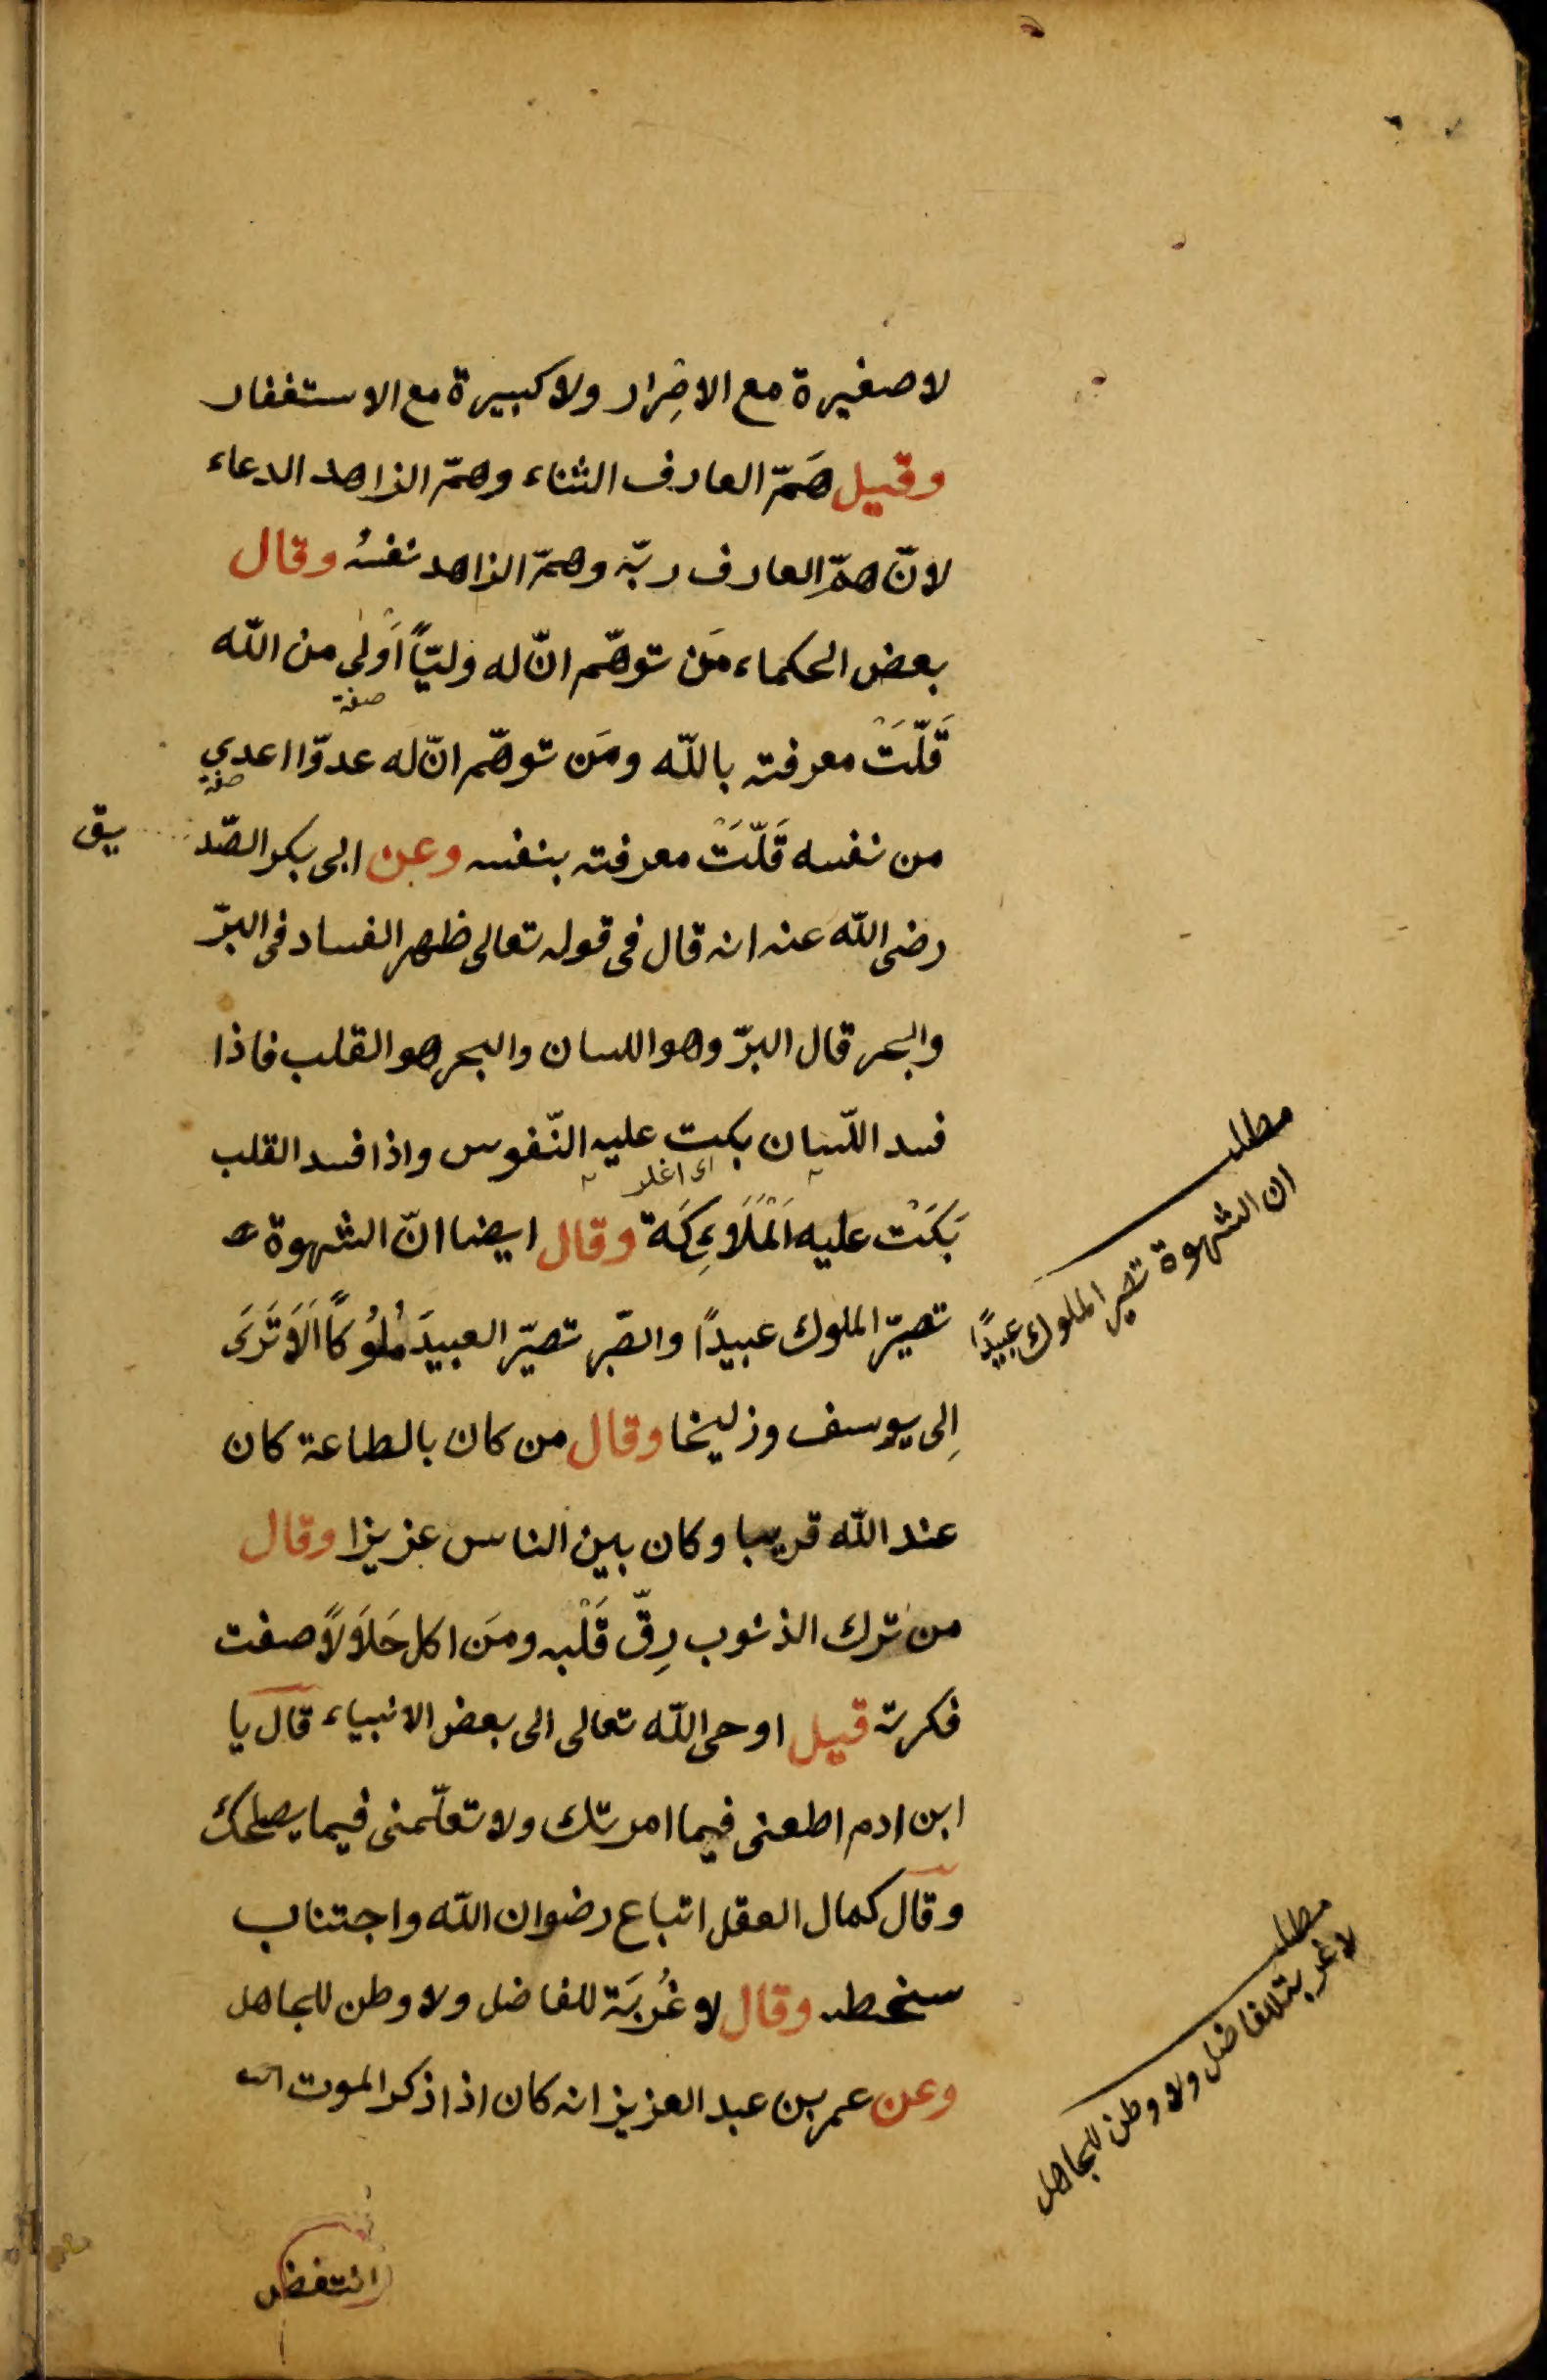 لا صغيرة مع الاصِرار ولا كبيرة مع الاستغفار
وقيل هَمّ العارف الثناء وهمّ الزاهد الدعاء
لانّ همّ العارف ربّه وهمّ الزاهد نفسُه وقال
بعض الحكماء مَن توهّم انّ له وليّاً اَوْلى من الله
صفة
قَلّتَْ معرفته بالله ومَن توهّم انّ له عدوّا اعدي
صفة
من نفسه قَلّتَْ معرفته بنفسه وعن ابى بكر الصّديق
رضى الله عنه انه قال فى قوله تعالى ظهر الفساد فى البرّ
والبحر قال البرّ وهو اللسان والبحر هو القلب فاذا
فسد اللّسان بكت عليه النّفوس واذا فسد القلب
بَكَتْ عليه اَلْمَلَاءِكَة وقال ايضا انّ الشهوة
تصيّر الملوك عبيدًا والصّبر تصيّر العبيدَ مُلُوكًا اَلَا تَرَى
اِلى يوسف وزليخا وقال من كان بالطاعة كان
عند الله قريبا وكان بين الناس عزيزا وقال
من ترك الذنوب رِقّ قَلْبه ومَن اكل حَلَالًا صفت
فكرته قيل اوحى الله تعالى الى بعض الانبياء قال يا
ابن ادم اطعنى فيما امرتك ولا تعلّمنى فيما يصلحك
وقال كمال العقل اتباع رضوان الله واجتناب
سخطه وقال لا غُربَة للفاضل ولا وطن للجاهل
وعن عمر بن عبد العزيز انه كان اذا ذكر الموت
انتفض
مطلب
ان الشهوة تصير الملوك عبيدًا
مطلب
لا غربة للفاضل ولا وطن للجاهل